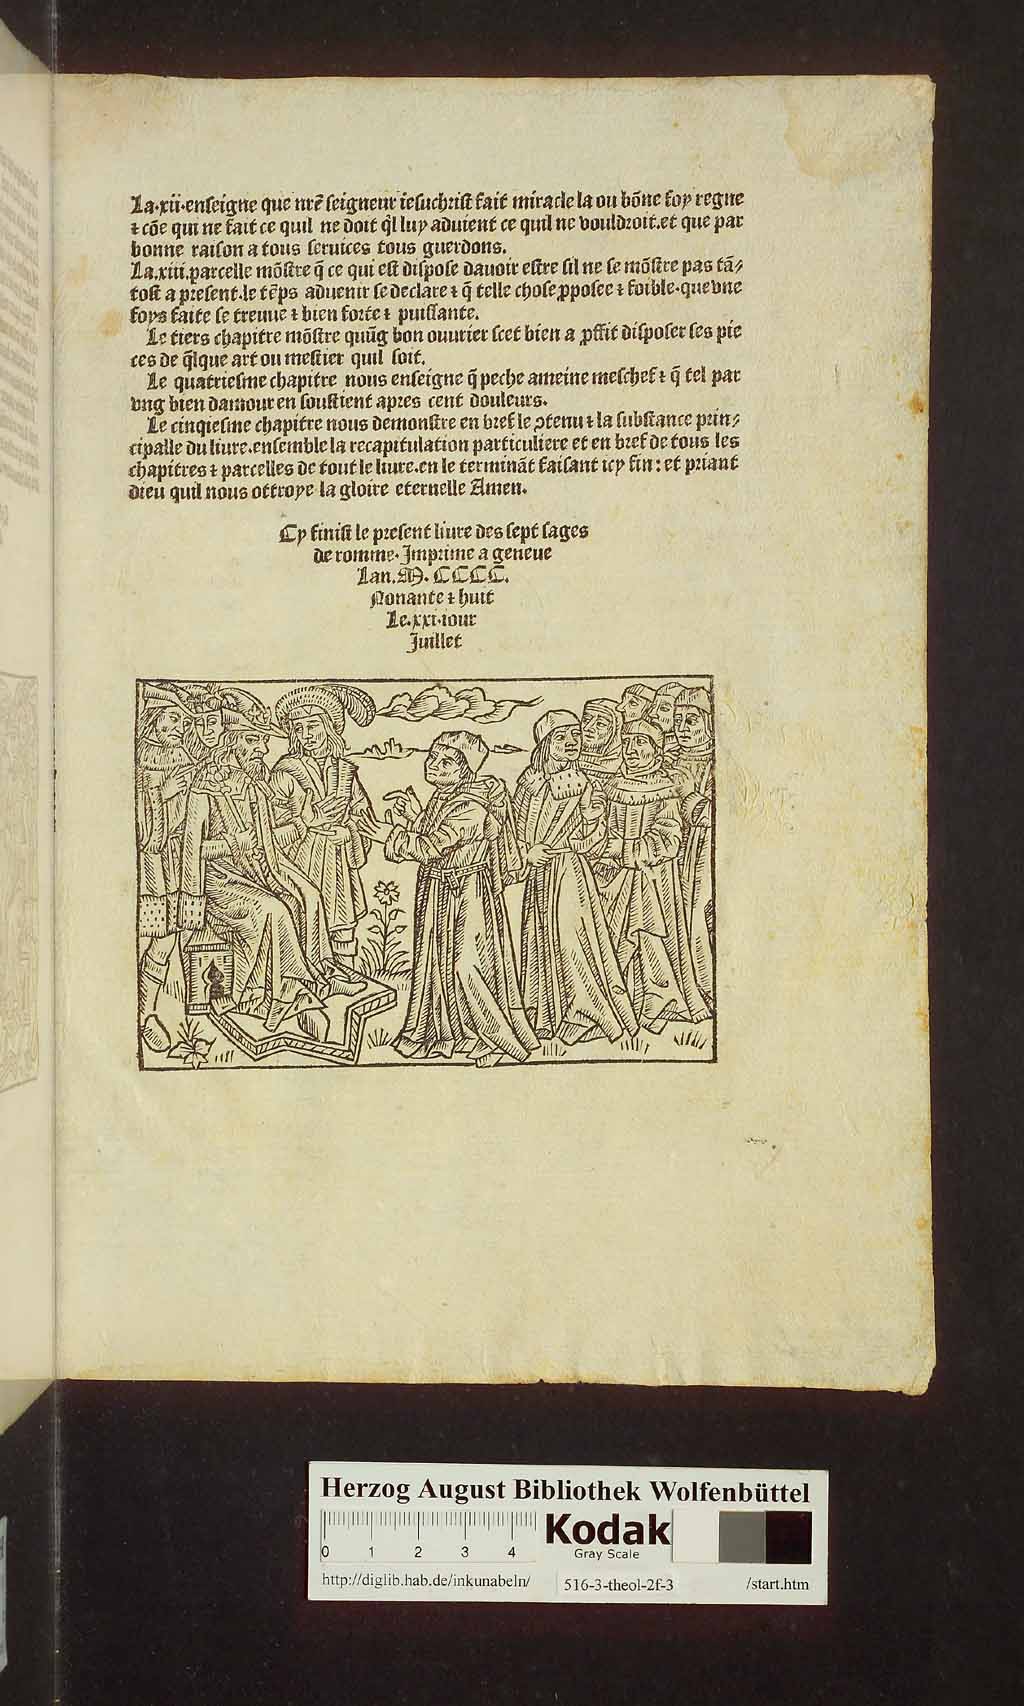 La.xii.enseigne que nr̃e seigneur iesuchrist fait miracle la ou bõne foy regne
⁊ cõe qui ne fait ce quil ne doit q̃l luy aduient ce quil ne vouldroit.et que par
bonne raison a tous seruices tous guerdons.
La.xiii.parcelle mõstre q̃ ce qui est dispose dauoir estre sil ne se mõstre pas tã⸗
tost a present.le tẽps aduenir se declare ⁊ q̃ telle chose ꝓposee ⁊ foible.que vne
foys faite se treuue ⁊ bien forte ⁊ puissante.
Le tiers chapitre mõstre quũg bon ouurier scet bien a ꝓffit disposer ses pie
ces de q̃lque art ou mestier quil soit.
Le quatriesme chapitre nous enseigne q̃ peche ameine meschef ⁊ q̃ tel par
vng bien damour en soustient apres cent douleurs.
Le cinqiesme chapitre nous demonstre en bref le ꝯtenu ⁊ la substance prin⸗
cipalle du liure.ensemble la recapitulation particuliere et en bref de tous les
chapitres ⁊ parcelles de tout le liure.en le terminãt faisant icy fin: et priant
dieu quil nous ottroye la gloire eternelle Amen.
Cy finist le present liure des sept sages
de romme. Imprime a geneue
Lan.M.CCCC.
Nonante ⁊ huit
Le.xxi.iour
Juillet
Herzog August Bibliothek Wolfenbüttel
0 1 2 3 4
Kodak
Gray Scale
http://diglib.hab.de/inkunabeln/ 516-3-theol-2f-3 /start.htm